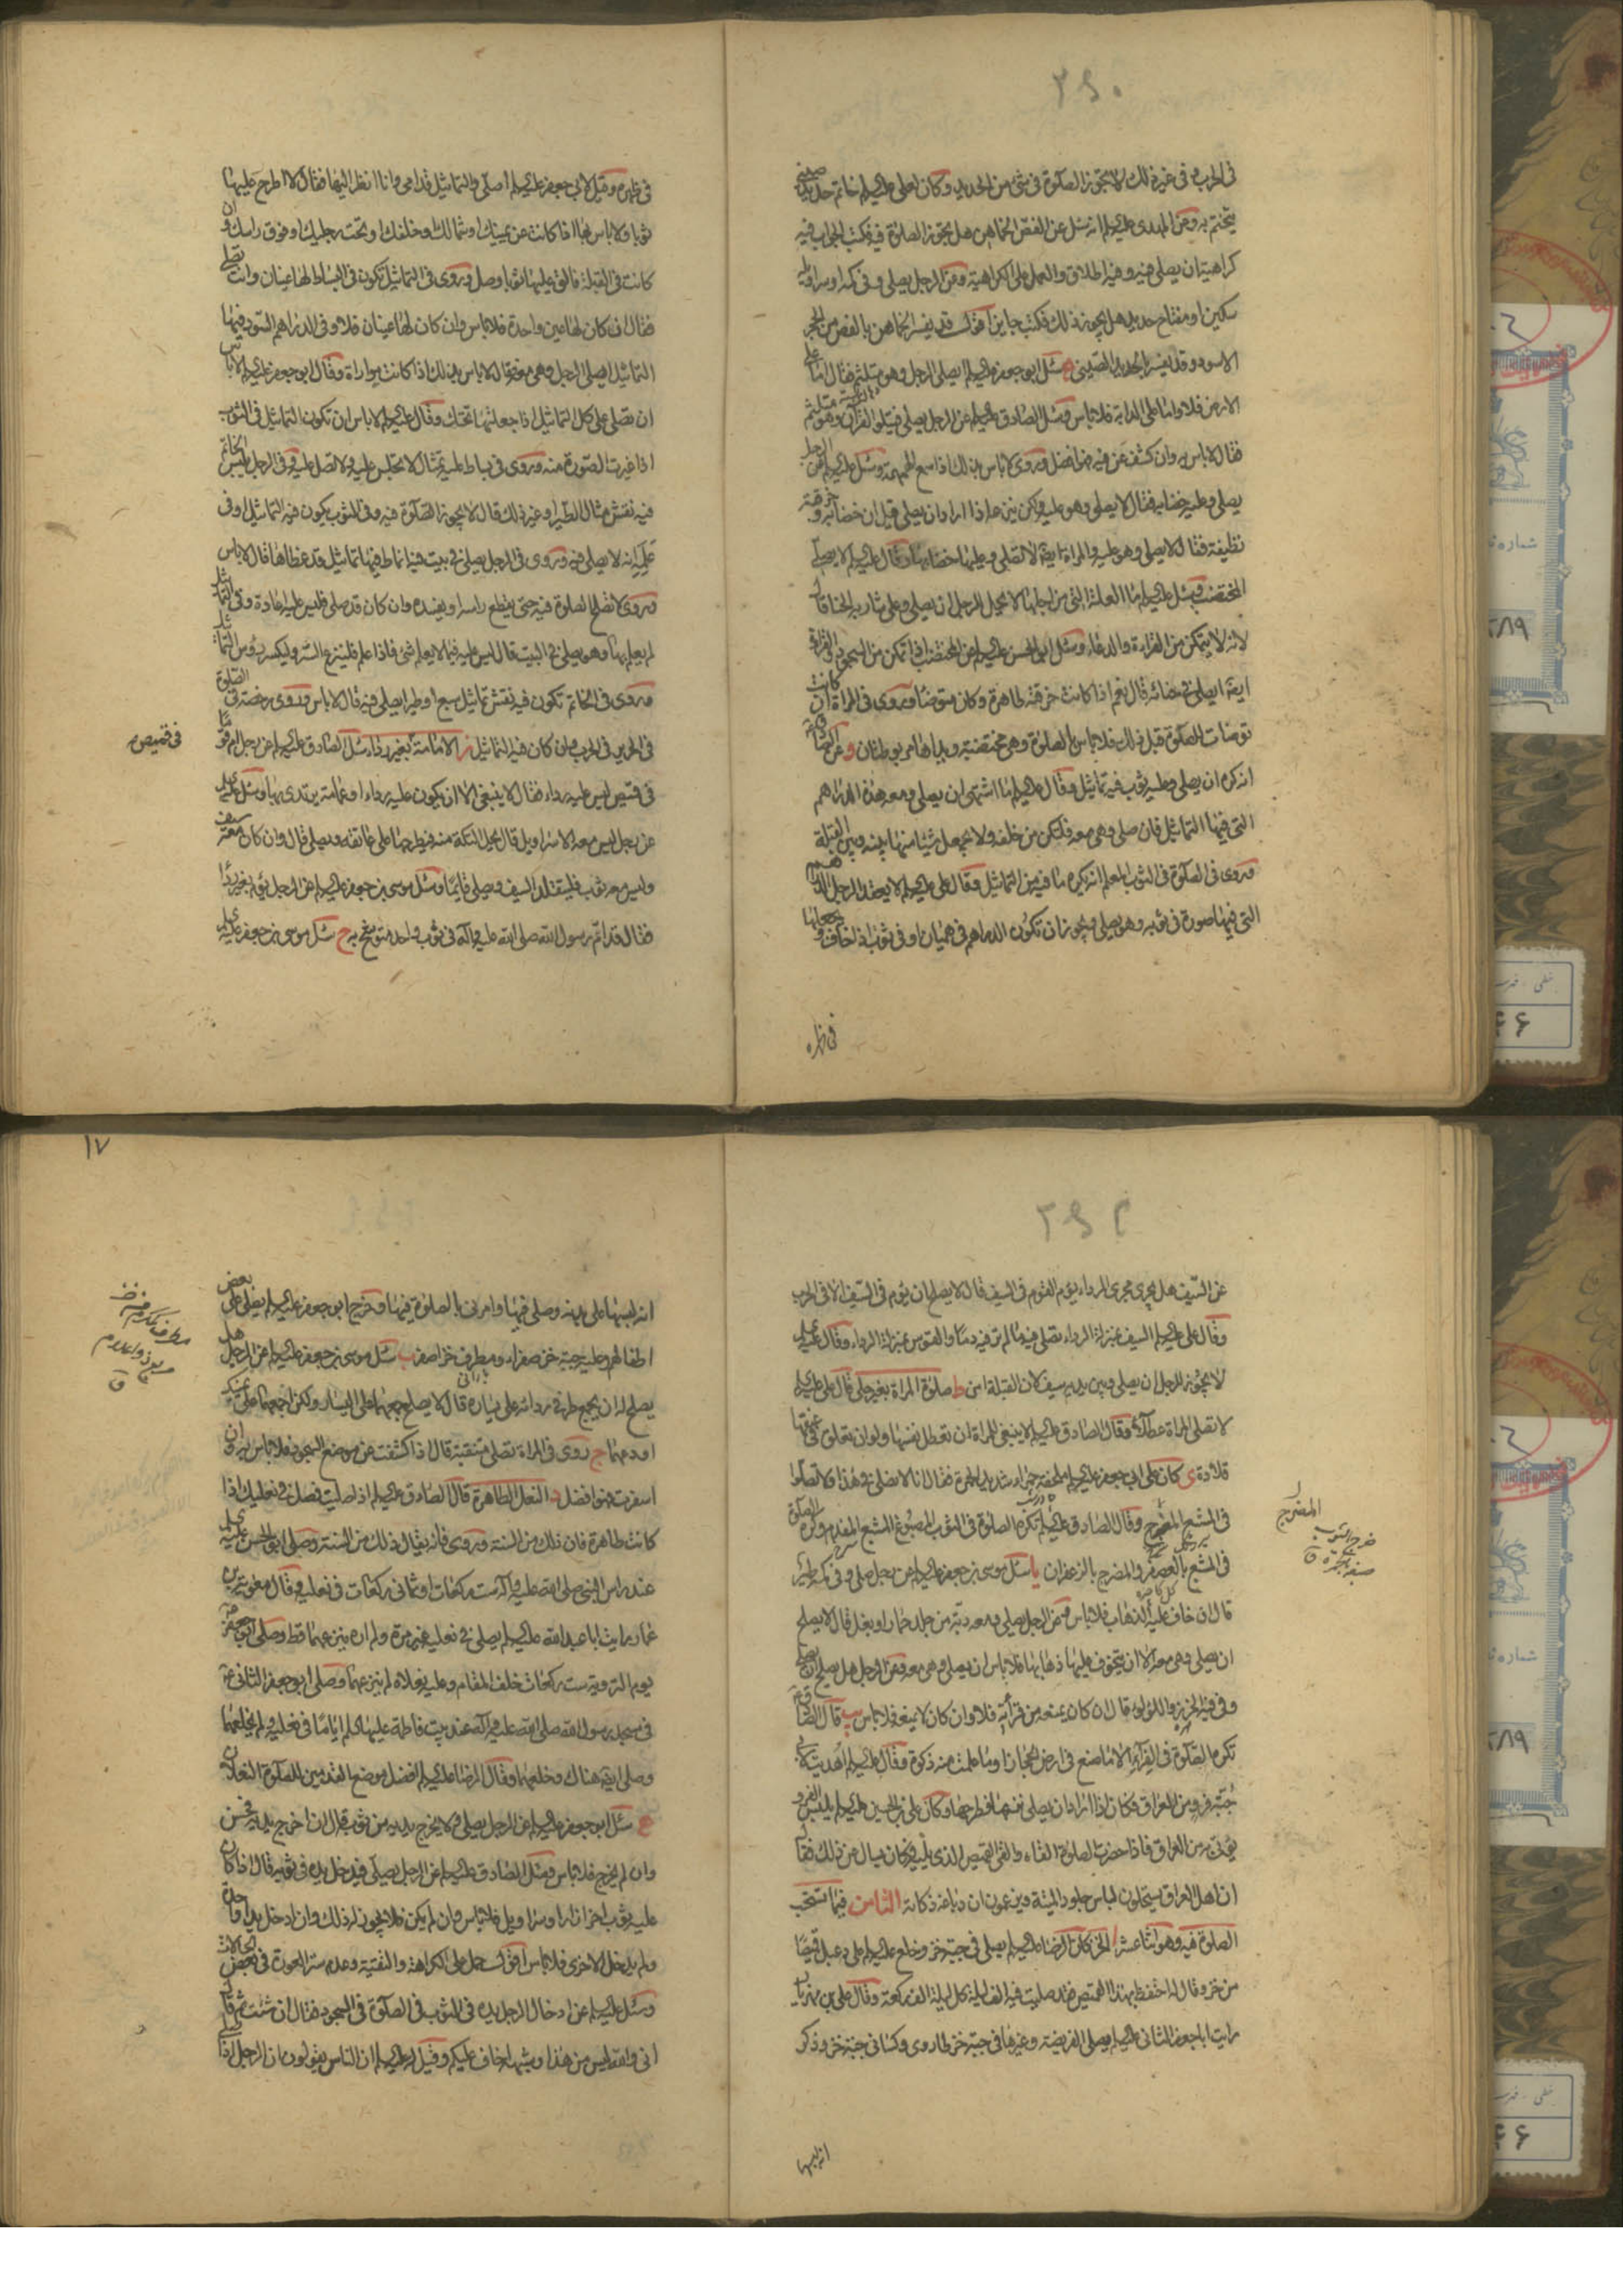 ٢٤٠
في الحرب وفي غير ذلك لا يجوز الصلوة في شئ من الحديد وكان لعلي عليه السلم خاتم حديد صيني
يتختم به وعن المهدي عليه السلم انه سئل عن الفص الخماهن هل يجوز الصلوة فيه فكتب الجواب فيه
كراهية ان يصلي فيه وفيه اطلاق والعمل على الكراهية وعن الرجل يصلي وفي كمه او سراويله
سكين او مفتاح حديد هل يجوز ذلك فكتب جايز اقول قد يفسر الخماهن بالفص من الحجر
الاسود وقد يفسر بالحديد الصيني سئل ابو جعفر عليه السلم ايصلي الرجل وهو متلثم فقال اما على
الارض فلا واما على الدابة فلا باس وسئل الصادق عليه السلم عن الرجل يصلي فيتلو القرآن وهو متلثم
فقال لا باس به وان كشف عن فيه فهو افضل وروي لا باس بذلك اذا سمع الهمهمة وسئل عليه السلم عن الرجل
يصلي وعليه خضابه فقال لا يصلي وهو عليه ولكن ينزعه اذا اراد ان يصلي قيل ان خضابه وخرقته
نظيفة فقال لا يصلي وهو عليه والمراة ايضا لا تصلي وعليها خضابها وقال عليه السلم لا يصلي
المختضب وسئل عليه السلم ما العلة التي من اجلها لا يحل للرجل ان يصلي وعلى شاربه الحنا قال
لانه لا يتمكن من القراءة والدعاء وسئل ابو الحسن عليه السلم عن المختضب اذا تمكن من السجود والقراءة
ايضا ايصلي في حنائه قال نعم اذا كانت خرقته طاهرة وكان متوضئا وروي في المراة ان كانت
توضات للصلوة قبل ذلك فلا باس بالصلوة وهي مختضبة ويداها مربوطتان و عن الرضا
انه كره ان يصلي وعليه ثوب فيه تماثيل وقال عليه السلم ما اشتهى ان يصلي ومعه هذه الدراهم
التي فيها التماثيل فان صلى وهي معه فلتكن من خلفه ولا يجعل شيئا منها بينه وبين القبلة
وروي في الصلوة في الثوب المعلم انه يكره ما فيه من التماثيل وقال علي عليه السلم لا يعقد الرجل الدراهم
التي فيها صورة في ثوبه وهو يصلي ويجوز ان تكون الدراهم في هميان او في ثوب اذا خاف ويجعلها
في ظهره
في ظهره وقيل لابي جعفر عليه السلم اصلي والتماثيل قدامي وانا انظر اليها فقال لا اطرح عليها
ثوبا ولا باس بها اذا كانت عن يمينك او شمالك او خلفك او تحت رجليك او فوق راسك وان
كانت في القبلة فالق عليها ثوبا وصل وروي في التماثيل تكون في البساط لها عينان وانت تصلي
فقال ان كان لها عين واحدة فلا باس وان كان لها عينان فلا وفي الدراهم السود فيها
التماثيل ايصلي الرجل وهي معه فقال لا باس بذلك اذا كانت مواراة وقال ابو جعفر عليه السلم لا باس
ان تصلي على كل التماثيل اذا جعلتها تحتك وقال عليه السلم لا باس ان تكون التماثيل في الثوب
اذا غيرت الصورة منه وروي في بساط عليه تمثال لا تجلس عليه ولا تصل عليه وفي الرجل يلبس الخاتم
فيه نقش مثال الطير او غير ذلك قال لا يجوز الصلوة فيه وفي الثوب يكون فيه التماثيل او في
علمه انه لا يصلي فيه وروي في الرجل يصلي في بيت فيه انماط فيها تماثيل قد غطاها قال لا باس
وروي لا تصلح الصلوة فيه حتى يقطع راسه او يفسده وان كان قد صلى فليس عليه اعادة وفي التماثيل
لم يعلم بها وهو يصلي في البيت قال ليس عليه فيما لا يعلم شئ فاذا علم فلينزع الستر وليكسر رؤس التماثيل
وروي في الخاتم تكون فيه نقش تماثيل سبع او طير ايصلي فيه قال لا باس وروي رخصة في الصلوة
في الحرير في الحرب وان كان فيه التماثيل ز الامامة بغير رداء سئل الصادق عليه السلم عن رجل ام قوما
في قميص
في قميص ليس عليه رداء فقال لا ينبغي الا ان يكون عليه رداء او عمامة يرتدي بها وسئل عليه السلم
عن رجل ليس معه الا سراويل قال يحل التكة منه فيطرحها على عاتقه ويصلي قال وان كان معه سيف
وليس معه ثوب فليتقلد السيف ويصلي قايما وسئل موسى بن جعفر عليه السلم عن الرجل يؤم بغير رداء
فقال قد ام رسول الله صلى الله عليه واله في ثوب واحد متوشح به ح سئل موسى بن جعفر عليه السلم
١٧
٢٤٢
عن السيف هل يجري مجرى الرداء يؤم القوم في السيف قال لا يصلح ان يؤم في السيف الا في الحرب
وقال علي عليه السلم السيف بمنزلة الرداء تصلي فيه ما لم تر فيه دما والقوس بمنزلة الرداء وقال عليه السلم
لا يجوز للرجل ان يصلي وبين يديه سيف لان القبلة امن ط صلوة المراة بغير حلي قال علي عليه السلم
لا تصلي المراة عطلا وقال الصادق عليه السلم لا ينبغي للمراة ان تعطل نفسها ولو ان تعلق في عنقها
قلادة ى كان على ابي جعفر عليه السلم ملحفة حمراء شديدة الحمرة فقال انا لا نصلي في هذا ولا تصلوا
في المشبع المضرج وقال الصادق عليه السلم تكره الصلوة في الثوب المصبوغ المشبع المفدم وكره الصلوة
المضرج
ضرج الثوب
صبغه بالحمرة ق
في المشبع بالعصفر والمضرج بالزعفران يا سئل موسى بن جعفر عليه السلم عن رجل صلى وفي كمه طير
قال ان خاف عليه الذهاب فلا باس وعن الرجل يصلي ومعه دبة من جلد حمار او بغل قال لا يصلح
ان يصلي وهي معه الا ان يتخوف عليها ذهابها فلا باس ان يصلي وهي معه وعن الرجل هل يصلح ان يصلي
وفي فيه الخرز واللؤلؤ قال ان كان يمنعه من قراءته فلا وان كان لا يمنعه فلا باس يب قال الصادق
تكره الصلوة في الفراء الا ما صنع في ارض الحجاز او ما علمت منه ذكوة وقال عليه السلم اهديت لابي
جبة فرو من العراق وكان اذا اراد ان يصلي نزعها فطرحها وكان علي بن الحسين عليه السلم يلبس الفرو
يؤتى به من العراق فاذا حضرت الصلوة القاه والقى القميص الذي يليه فكان يسال عن ذلك فقال
ان اهل العراق يستحلون لباس جلود الميتة ويزعمون ان دباغه ذكاته الثامن فيما تستحب
الصلوة فيه وهو اثنا عشر ا الخز كان الرضا عليه السلم يصلي في جبة خز وخلع عليه السلم على دعبل قميصا
من خز وقال له احتفظ بهذا القميص فقد صليت فيه الف ليلة كل ليلة الف ركعة وقال علي بن مهزيار
رايت ابا جعفر الثاني عليه السلم يصلي الفريضة وغيرها في جبة خز طاروي وكساني جبة خز وذكر
انه لبسها
انه لبسها على بدنه وصلى فيها وامرني بالصلوة فيها وخرج ابو جعفر عليه السلم يصلي على بعض
اطفالهم وعليه جبة خز صفراء ومطرف خز اصفر ب سئل موسى بن جعفر عليه السلم عن الرجل هل
يصلح له ان يجمع طرفي ردائه على يساره قال لا يصلح جمعهما على اليسار ولكن اجمعهما على يمينك
او دعهما ج روي في المراة تصلي متنقبة قال اذا كشفت عن موضع السجود فلا باس به وان
اسفرت فهو افضل د النعل الطاهرة قال الصادق عليه السلم اذا صليت فصل في نعليك اذا
كانت طاهرة فان ذلك من السنة وروي فانه يقال ذلك من السنة وصلى ابو الحسن عليه السلم
عند راس النبي صلى الله عليه واله ست ركعات او ثماني ركعات في نعليه وقال معوية بن
عمار رايت ابا عبد الله عليه السلم يصلي في نعليه غير مرة ولم اره ينزعهما قط وصلى ابو جعفر
يوم التروية ست ركعات خلف المقام وعليه نعلاه لم ينزعهما وصلى ابو جعفر الثاني
في مسجد رسول الله صلى الله عليه واله عند بيت فاطمة عليها السلم اياما في نعليه ولم يخلعهما
وصلى ابنه هناك وخلعهما وقال الرضا عليه السلم افضل موضع القدمين للصلوة النعلان
سئل ابو جعفر عليه السلم عن الرجل يصلي ولا يخرج يديه من ثوبه قال ان اخرج يديه فحسن
وان لم يخرج فلا باس وسئل الصادق عليه السلم عن الرجل يصلي فيدخل يده في ثوبه قال ان كان
عليه ثوب اخر ازار او سراويل فلا باس وان لم يكن فلا يجوز له ذلك وان ادخل يدا واحدة
ولم يدخل الاخرى فلا باس اقول يحمل على الكراهة والتقية وعدم ستر العورة في بعض الحالات
وسئل عليه السلم عن ادخال الرجل يده في الثوب في الصلوة في السجود فقال ان شئت ثم قال
اني والله ليس من هذا وشبهه اخاف عليكم وقيل له عليه السلم ان الناس يقولون ان الرجل اذا